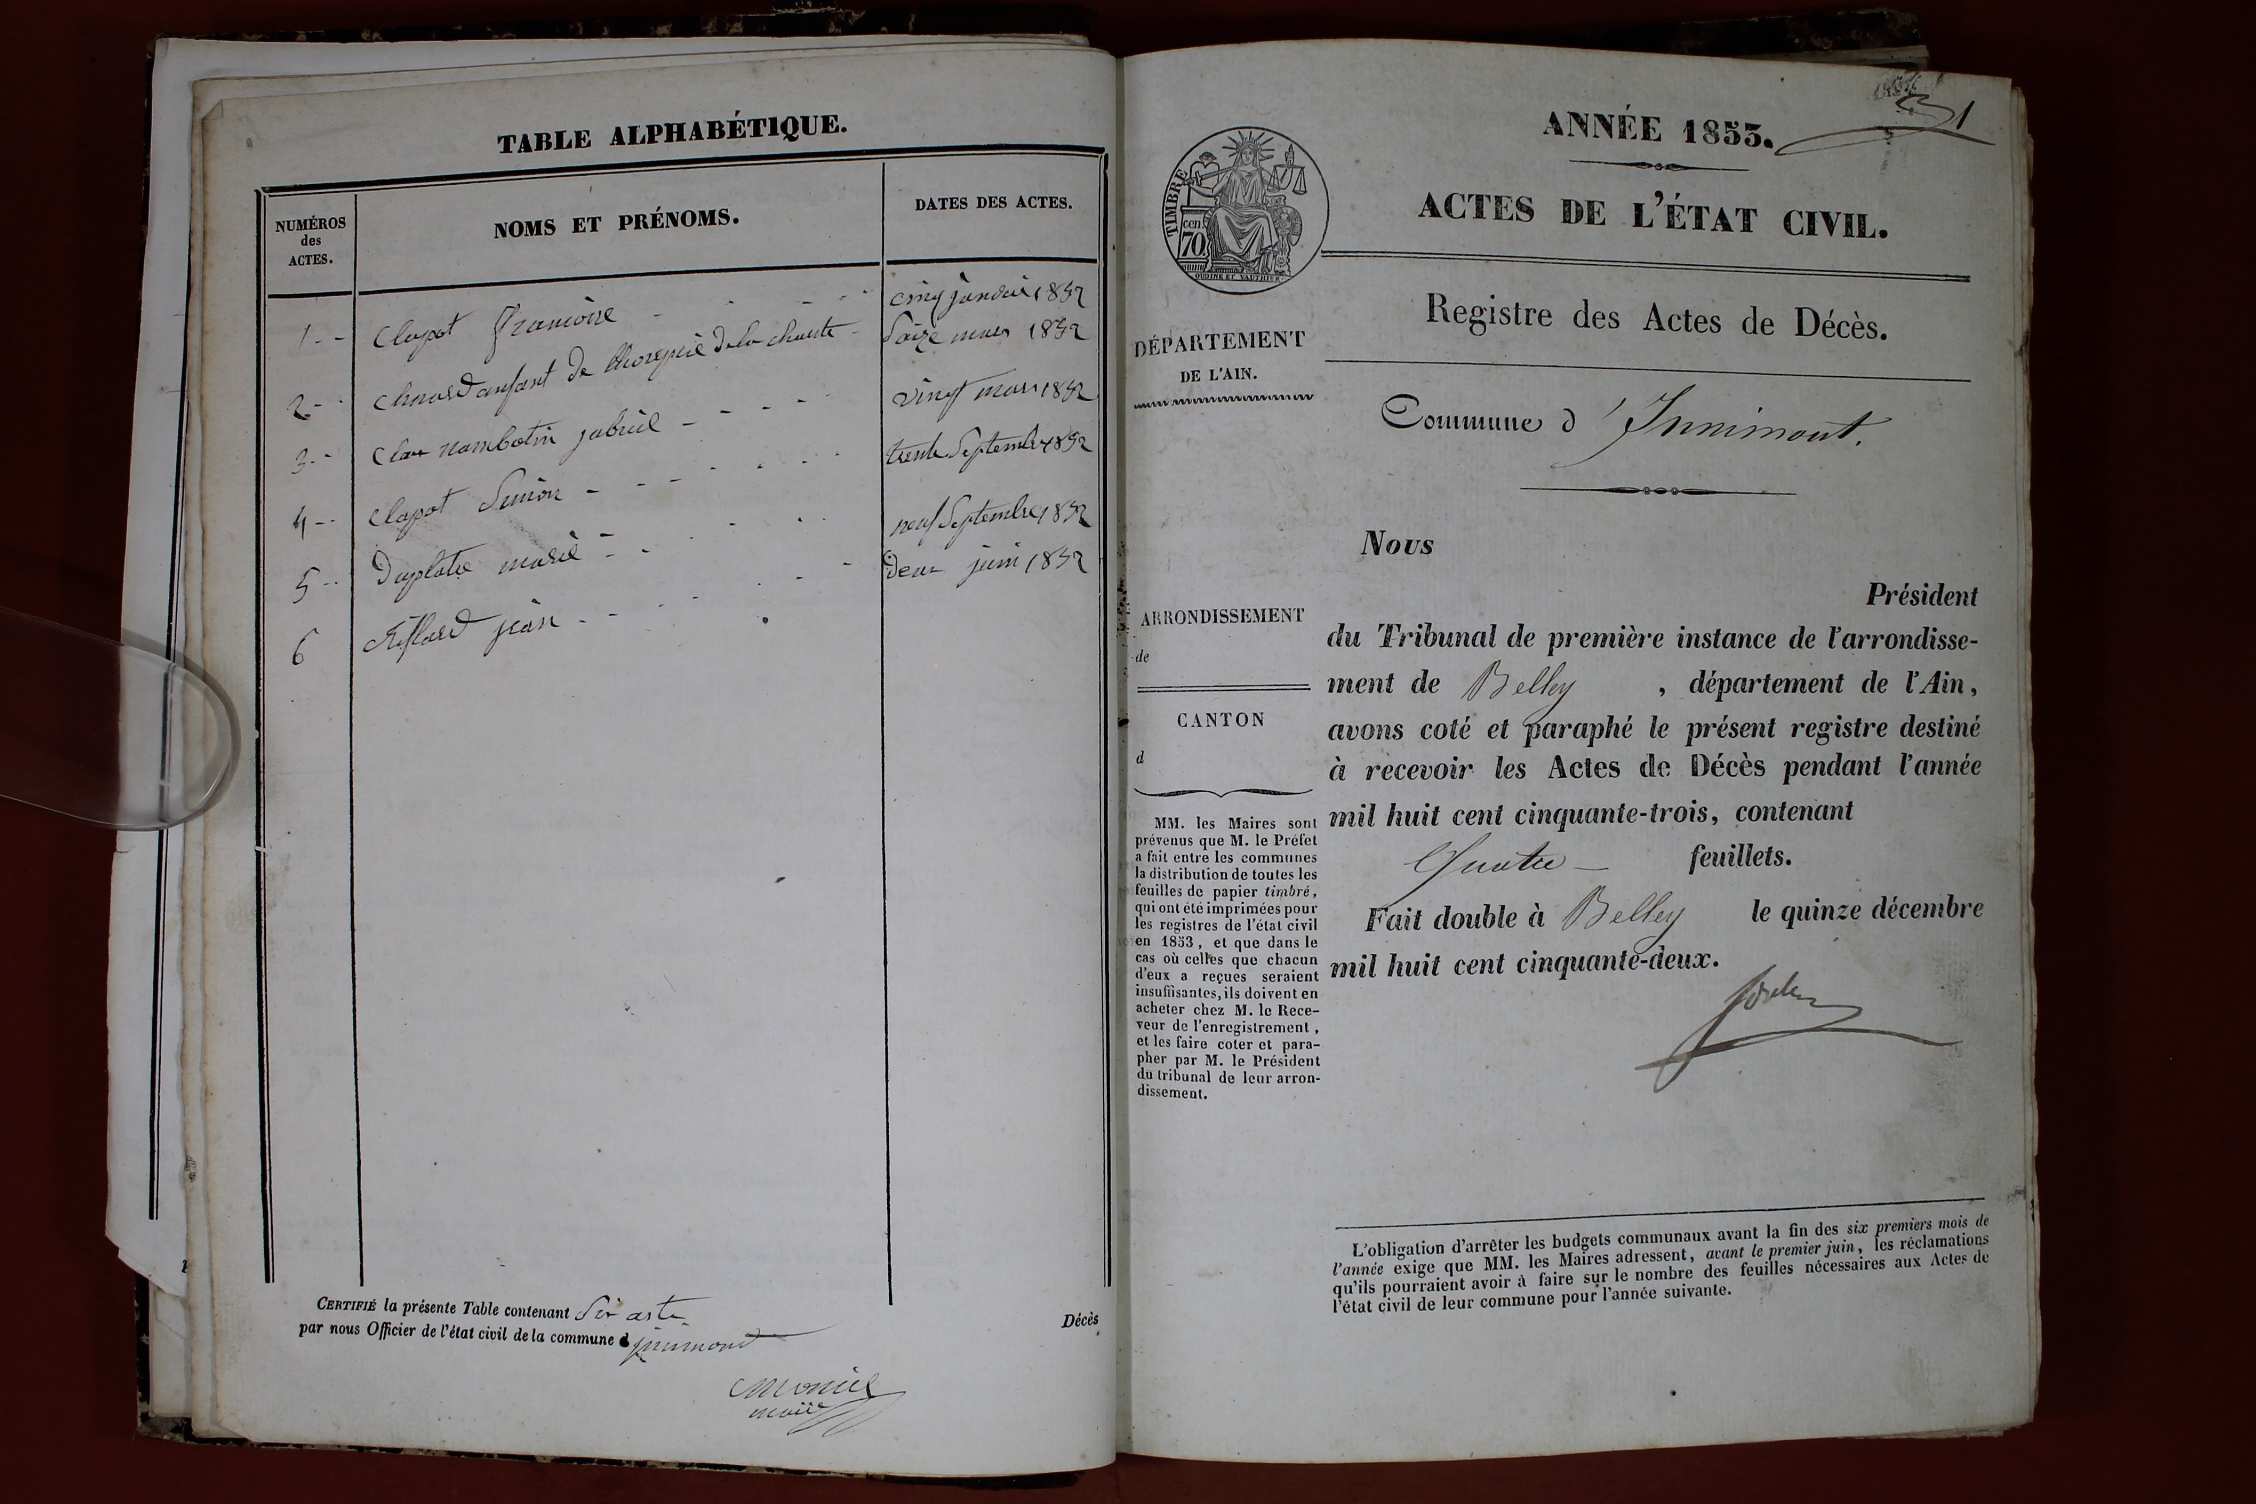 TABLE ALPHABÉTIQUE.
NUMÉROS
des
ACTES.
NOMS ET PRÉNOMS.
DATES DES ACTES.
1 clapot françoise cinq janvier 1852
2 enfant de de la charité Saize mars 1852
3 nambotin gabriel vingt mars 1852
4 clapot Simon trente Septembre 1852
5 Duplatre marie neuf Septembre 1852
6 jean deux juin 1852
CERTIFIÉ la présente Table contenant Six acte
par nous Officier de l'état civil de la commune d jnnimond
Décès
Monier
maire
31
ANNÉE 1853.
ACTES DE L'ÉTAT CIVIL.
TIMBRE
cen.
70
OUDINÉ ET VAUTHIER
DÉPARTEMENT
DE L'AIN.
Registre des Actes de Décès.
Commune d'Innimont.
Nous
Président
du Tribunal de première instance de l'arrondisse-
ment de Belley, département de l'Ain,
avons coté et paraphé le présent registre destiné
à recevoir les Actes de Décès pendant l'année
mil huit cent cinquante-trois, contenant
Quatre feuillets.
Fait double à Belley le quinze décembre
mil huit cent cinquante-deux.
ARRONDISSEMENT
de
CANTON
d
MM. les Maires sont
prévenus que M. le Préfet
a fait entre les communes
la distribution de toutes les
feuilles de papier timbré,
qui ont été imprimées pour
les registres de l'état civil
en 1853, et que dans le
cas où celles que chacun
d'eux a reçues seraient
insuffisantes, ils doivent en
acheter chez M. le Rece-
veur de l'enregistrement,
et les faire coter et para-
pher par M. le Président
du tribunal de leur arron-
dissement.
L'obligation d'arrêter les budgets communaux avant la fin des six premiers mois de
l'année exige que MM. les Maires adressent, avant le premier juin, les réclamations
qu'ils pourraient avoir à faire sur le nombre des feuilles nécessaires aux Actes de
l'état civil de leur commune pour l'année suivante.